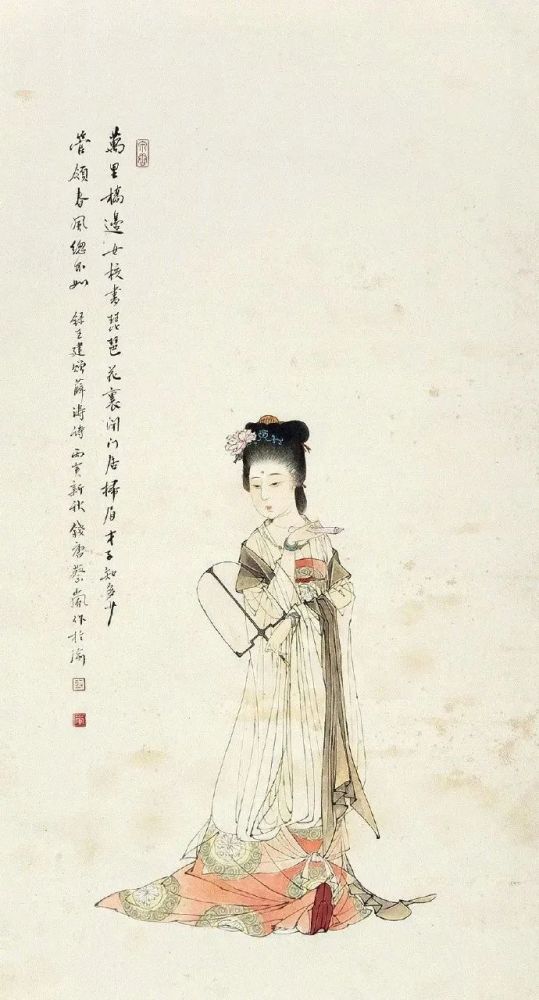 萬里橋邊女校書琵琶花裏閉門居掃眉才子知多少
管領春風總不如 錄王建贈薛濤詩丙寅新秋錢唐蔡作於